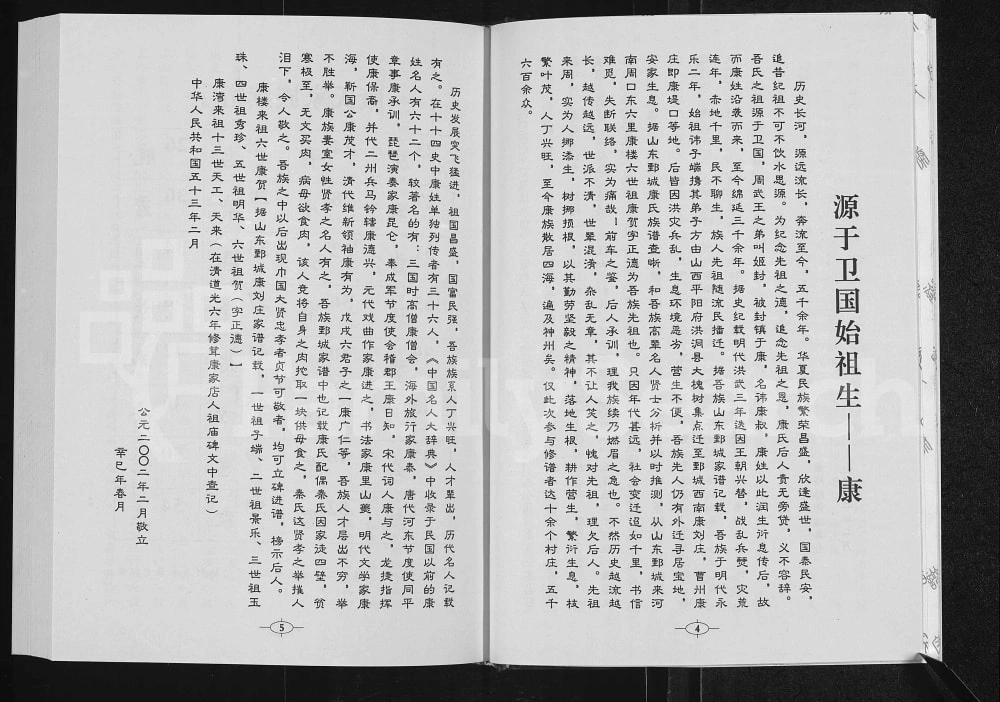 源于卫国始祖生——康
历史长河，源远流长，奔流至今，五千余年。华夏民族繁荣昌盛，欣逢盛世，国泰民安，
追昔纪祖不可不饮水思源。为纪念先祖之德，追念先祖之恩，康氏后人责无旁贷，义不容辞。
吾氏之祖源于卫国，周武王之弟叫姬封，被封镇于康，名讳康叔，康姓以此润生衍息传后，故
而康姓沿袭而来，至今绵延三千余年。据史纪载明代洪武三年迭因王朝兴替，战乱兵燹，灾荒
连年，赤地千里，民不聊生，族人先祖随流民播迁。据吾族山东鄄城家谱记载，吾族于明代永
乐二年，始祖讳子端携其弟子方由山西平阳府洪洞县大槐树集点迁至鄄城西南康刘庄，曹州康
庄即康堤口等地。后皆因洪灾兵乱，生息环境恶劣，营生不便，吾族先人仍有外迁寻居宝地，
安家生息。据山东鄄城康氏族谱查晰，和吾族高辈名人贤士分析并以时推测，从山东鄄城来河
南周口东六里康楼六世祖康贺字正德为吾族先祖也。只因年代甚远，社会变迁迢如千里，书信
难觅，失断联络，实为痛哉！前车之鉴，后人承训，理我族续乃燃眉之急也。不然历史越流越
长，越传越远，世派不清，世辈混淆，杂乱无章，其不让人笑之，愧对先祖，理欠后人。先祖
来周，实为人挪添生，树挪损根，以其勤劳坚毅之精神，落地生根，耕作营生，繁衍生息，枝
繁叶茂，人丁兴旺，至今康族散居四海，遍及神州矣。仅此次参与修谱者达十余个村庄，五千
六百余众。
4
历史发展突飞猛进，祖国昌盛，国富民强，吾族族系人丁兴旺，人才辈出，历代名人记载
有之。在二十四史中康姓单独列传者有三十六人，《中国名人大辞典》中收录于民国以前的康
姓名人有六十二个，较著名的有：三国时高僧康僧会，海外旅行家康泰，唐代河东节度使同平
章事康承训，琵琶演奏家康昆仑，奉成军节度使会稽郡王康日知，宋代词人康与之，龙捷指挥
使康保裔，并代二州兵马钤辖康德兴，元代戏曲作家康进之，书法家康里山夔，明代文学家康
海，靳国公康茂才，清代维新领袖康有为，戊戌六君子之一康广仁等，吾族人才层出不穷，举
不胜举。康族妻室女性贤孝之名人有之，吾族鄄城家谱中也记载康氏配偶秦氏因家徒四壁，贫
寒极至，无文买肉，病母欲食肉，该人竟将自身之肉挖取一块供母食之，秦氏这贤孝之举摧人
泪下，令人敬之。吾族之中以后出现巾国大贤忠孝者贞节可敬者，均可立碑进谱，榜示后人。
康楼来祖六世康贺【据山东鄄城康刘庄家谱记载，一世祖子端、二世祖景乐、三世祖玉
珠、四世祖秀珍、五世祖明华、六世祖贺（字正德）】
康湾来祖十三世天工、天来（在清道光六年修葺康家店人祖庙碑文中查记）
中华人民共和国五十三年二月
公元二〇〇二年二月敬立
辛巳年春月
5